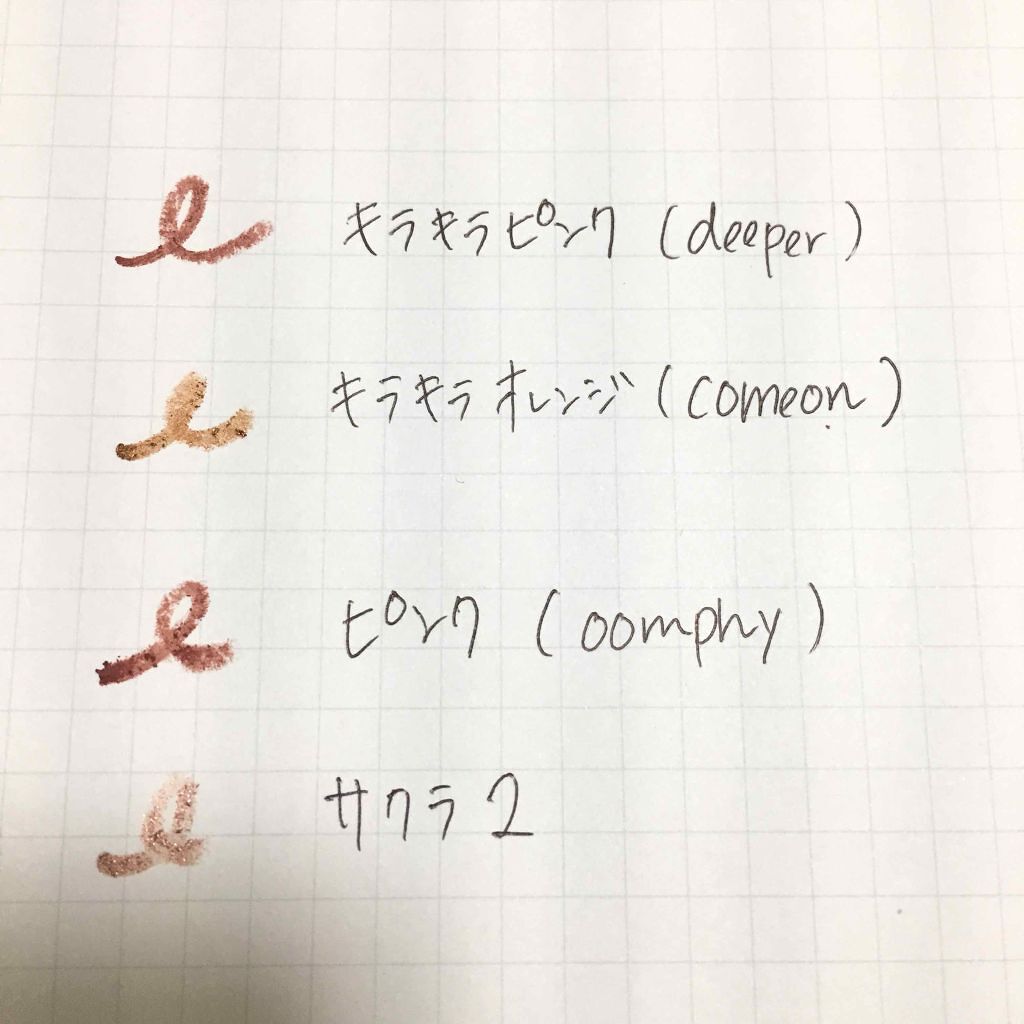 キラキラピンク (deeper)
キラキラオレンジ (comeon)
ピンク (oomphy)
サクラ2